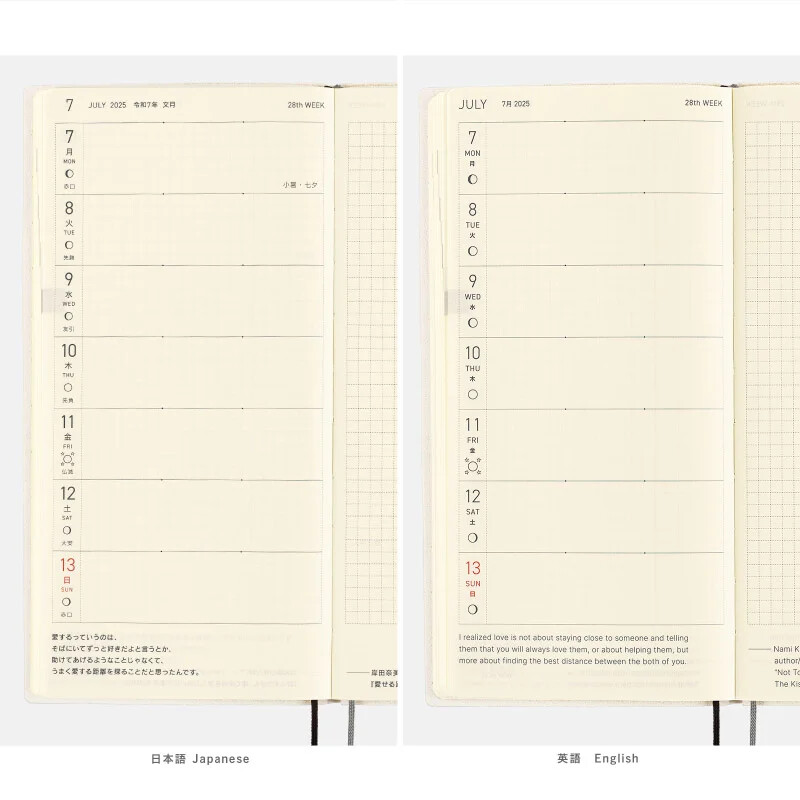 7 JULY 2025 令和7年 文月 28th WEEK
7
月
MON
赤口
小暑・七夕
8
火
TUE
先勝
9
水
WED
友引
10
木
THU
先負
11
金
FRI
仏滅
12
土
SAT
大安
13
日
SUN
赤口
愛するっていうのは、
そばにいてずっと好きだよと言うとか、
助けてあげるようなことじゃなくて、
うまく愛する距離を探ることだと思ったんです。
岸田奈美
『愛せる
日本語 Japanese
JULY 7月 2025 28th WEEK
7
MON
月
8
TUE
火
9
WED
水
10
THU
木
11
FRI
金
12
SAT
土
13
SUN
日
I realized love is not about staying close to someone and telling
them that you will always love them, or about helping them, but
more about finding the best distance between the both of you.
Nami K
author/
"Not To
The Kis
英語 English